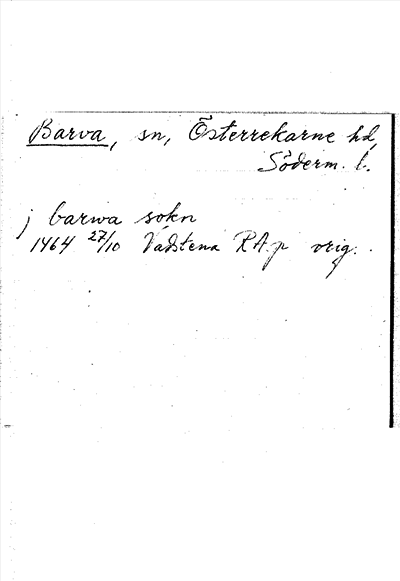 Barva, sn, Österrekarne hd,
Söderm. l.
j barwa sokn
1464 27/10 Vadstena RA p orig.